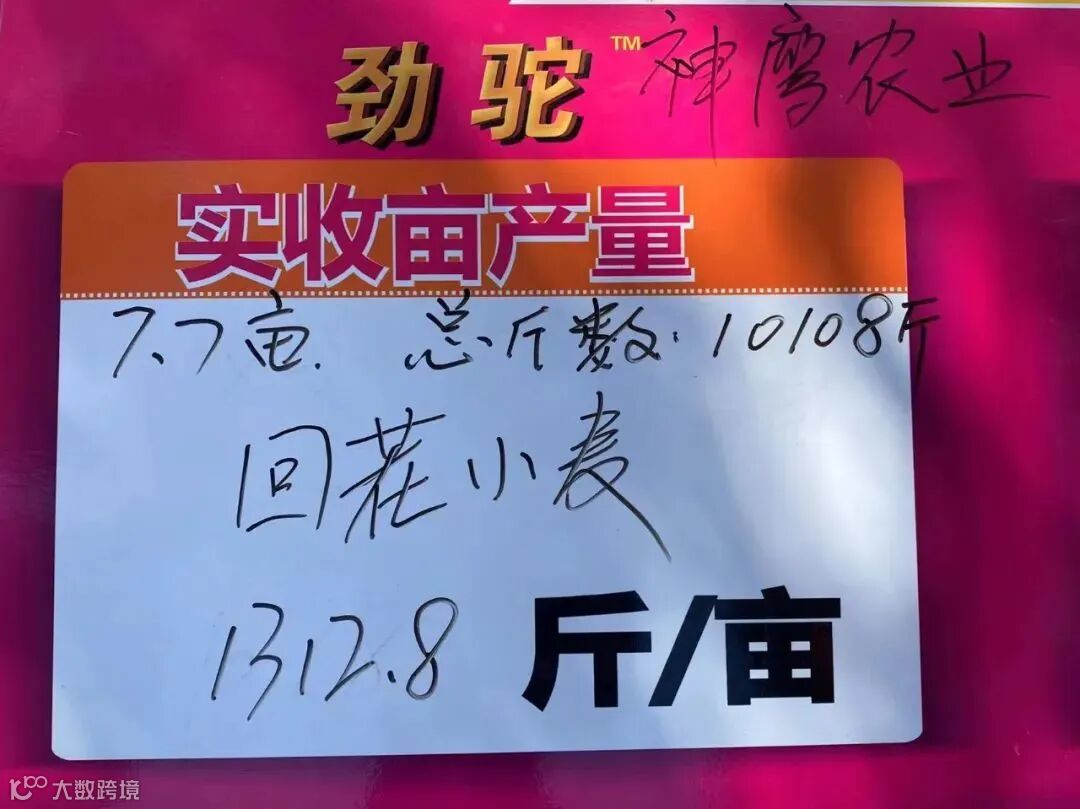 劲驼™ 神鹰农业
实收亩产量
7.7亩. 总斤数:10108斤
回茬小麦
1312.8 斤/亩
大数跨境